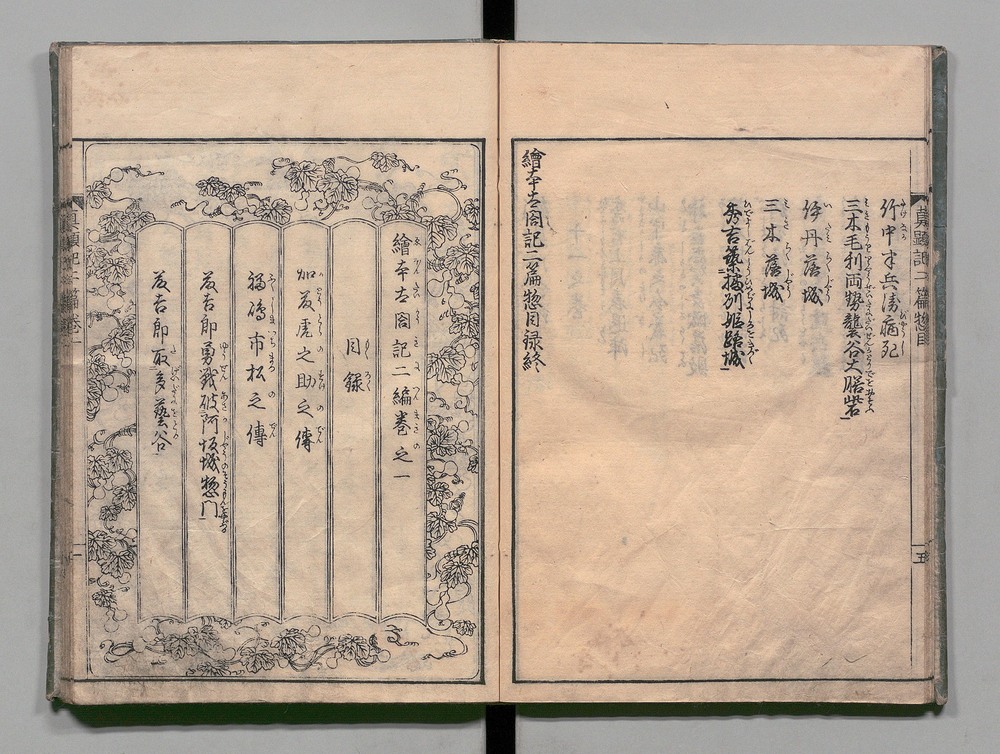 竹中半兵衛病死
三木毛利両勢襲谷大膳砦
伊丹落城
三木落城
秀吉築播州姫路城
繪本太閤記二篇惣目録終
真顕記二篇惣目
五
繪本太閤記二編巻之一
目錄
加藤虎之助之傳
福嶋市松之傳
藤吉郎勇戦破阿坂城惣門
藤吉郎取多藝谷
真顕記二篇巻一
一